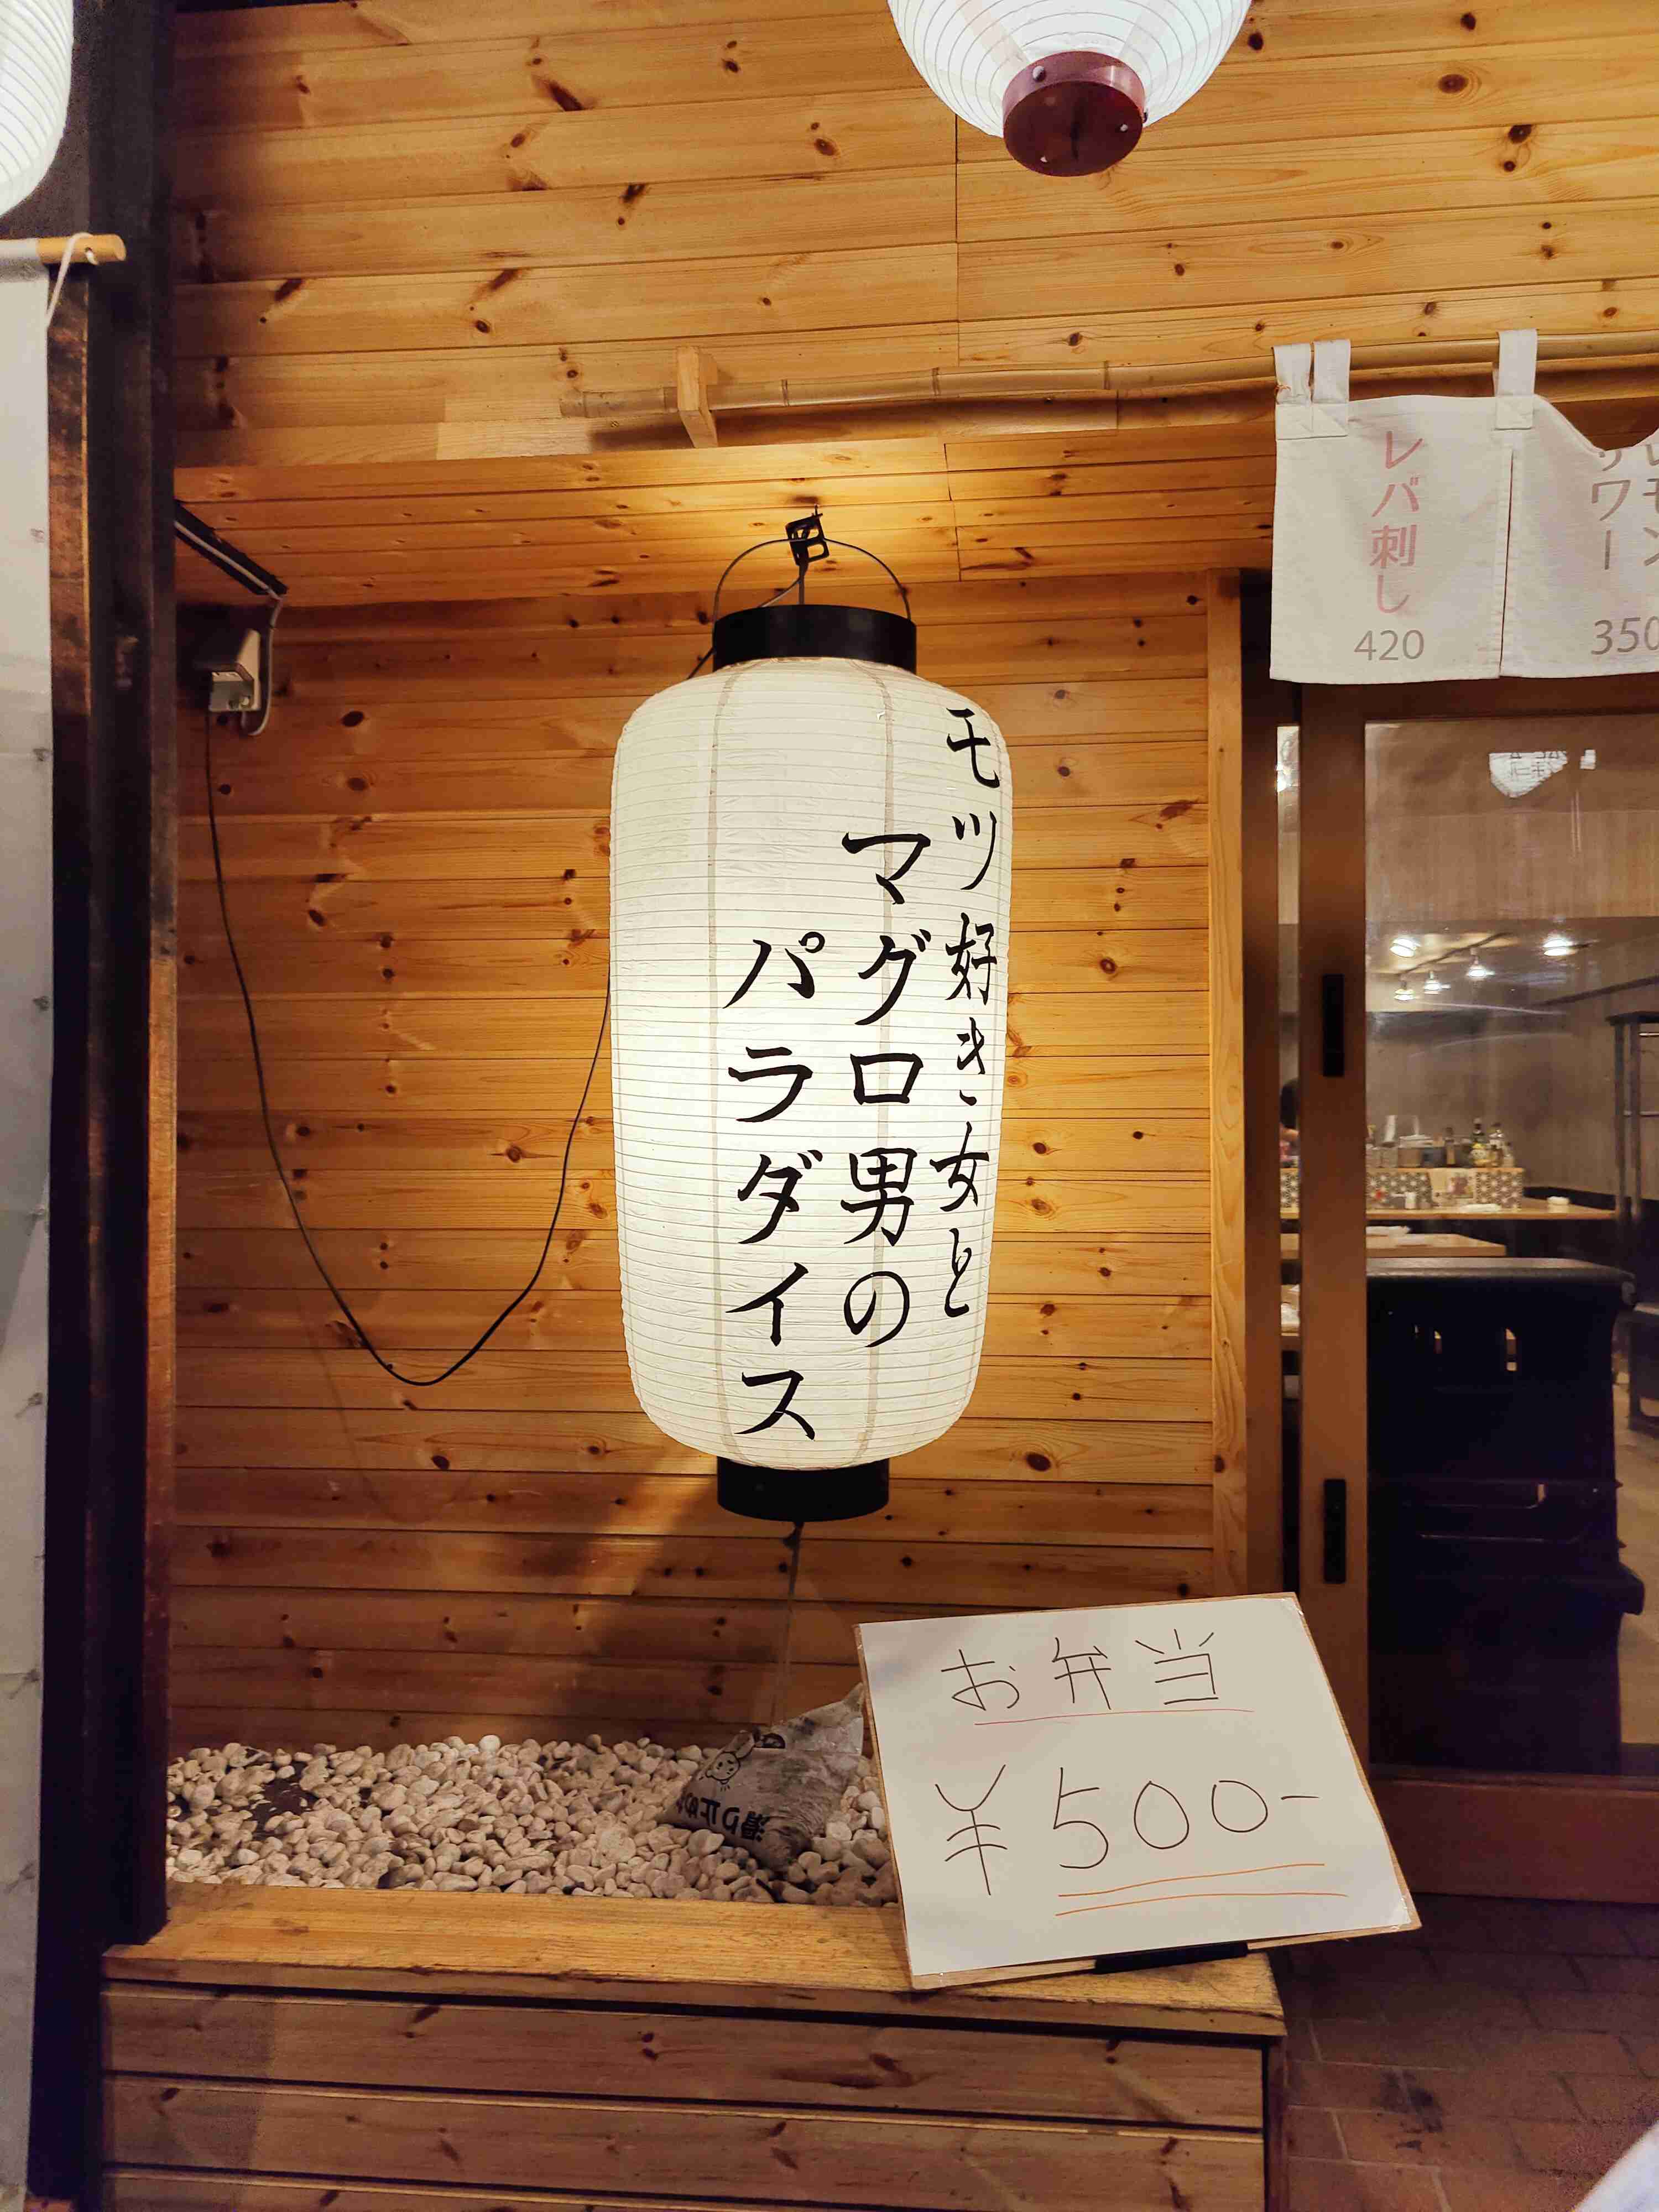 モツ好き女と
マグロ男の
パラダイス
レバ刺し
420
サワー
350
お弁当
¥500-